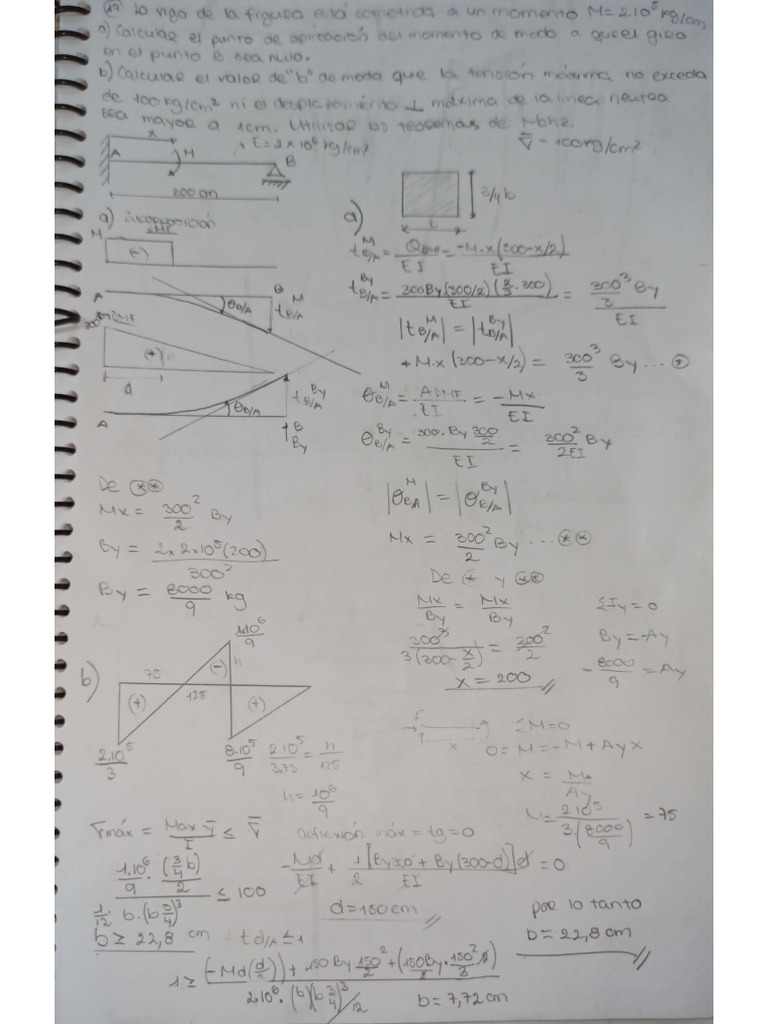 19) La viga de la figura está sometida a un momento M=2.10⁵ kg/cm
a) Calcular el punto de aplicación del momento de modo a que el giro
en el punto B sea nulo.
b) Calcular el valor de "b" de modo que la tensión máxima no exceda
de 100kg/cm² ni el desplazamiento ⊥ máxima de la linea neutra
sea mayor a 1cm. Utilizar los teoremas de Mohr.
E=2×10⁶ kg/cm²
σ̅ = 100kg/cm²
x
A M B
200cm
3/4 b
b
a) Superposición
M
(-)
A θB/A B t^M B/A
DMF
(+) h
d
A θB/A t^By B/A
By
a)
t^M B/A = = -M.x(300-x/2) / EI
t^By B/A = 300By(300/2)(2/3.300) / EI = 300³/3 By / EI
|t^M B/A| = |t^By B/A|
+M.x(300-x/2) = 300³/3 By ... ⊛
θ^M B/A = ADMF / EI = -Mx / EI
θ^By B/A = 300.By 300/2 / EI = 300²/2EI By
|θ^M B/A| = |θ^By B/A|
Mx = 300²/2 By ... ⊛⊛
De ⊛ y ⊛⊛
Mx/By = Mx/By
300³ / 3(300-x/2) = 300²/2
x = 200
ΣFy = 0
By = -Ay
-8000/9 = Ay
De ⊛⊛
Mx = 300²/2 By
By = 2×2×10⁵(200) / 300²
By = 8000/9 kg
b)
1.10⁶/9
75
(-) h
(+) 125 (+)
2.10⁵/3
8.10⁵/9
2.10⁵/3.75 = h/125
h = 10⁶/9
x
ΣM=0
0=M=-M+Ay x
x = M/Ay
= 2.10⁵ / 3.(8000/9) = 75
σmáx = Max y̅ / I ≤ σ̅
1.10⁶/9 . (3/4 b)/2 / 1/12 b.(b 3/4)³ ≤ 100
b ≥ 22,8 cm
Deflexión máx = tg = 0
-Md/EI + 1/2 [By300 + By(300-d)]d / EI = 0
d = 150cm
por lo tanto
b = 22,8 cm
t d/A ≤ 1
1 ≥ (-Md(d/2)) + 150By.150²/2 + (150By.150²/3) / 2.10⁶.(b)(b 3/4)³/12
b = 7,72cm